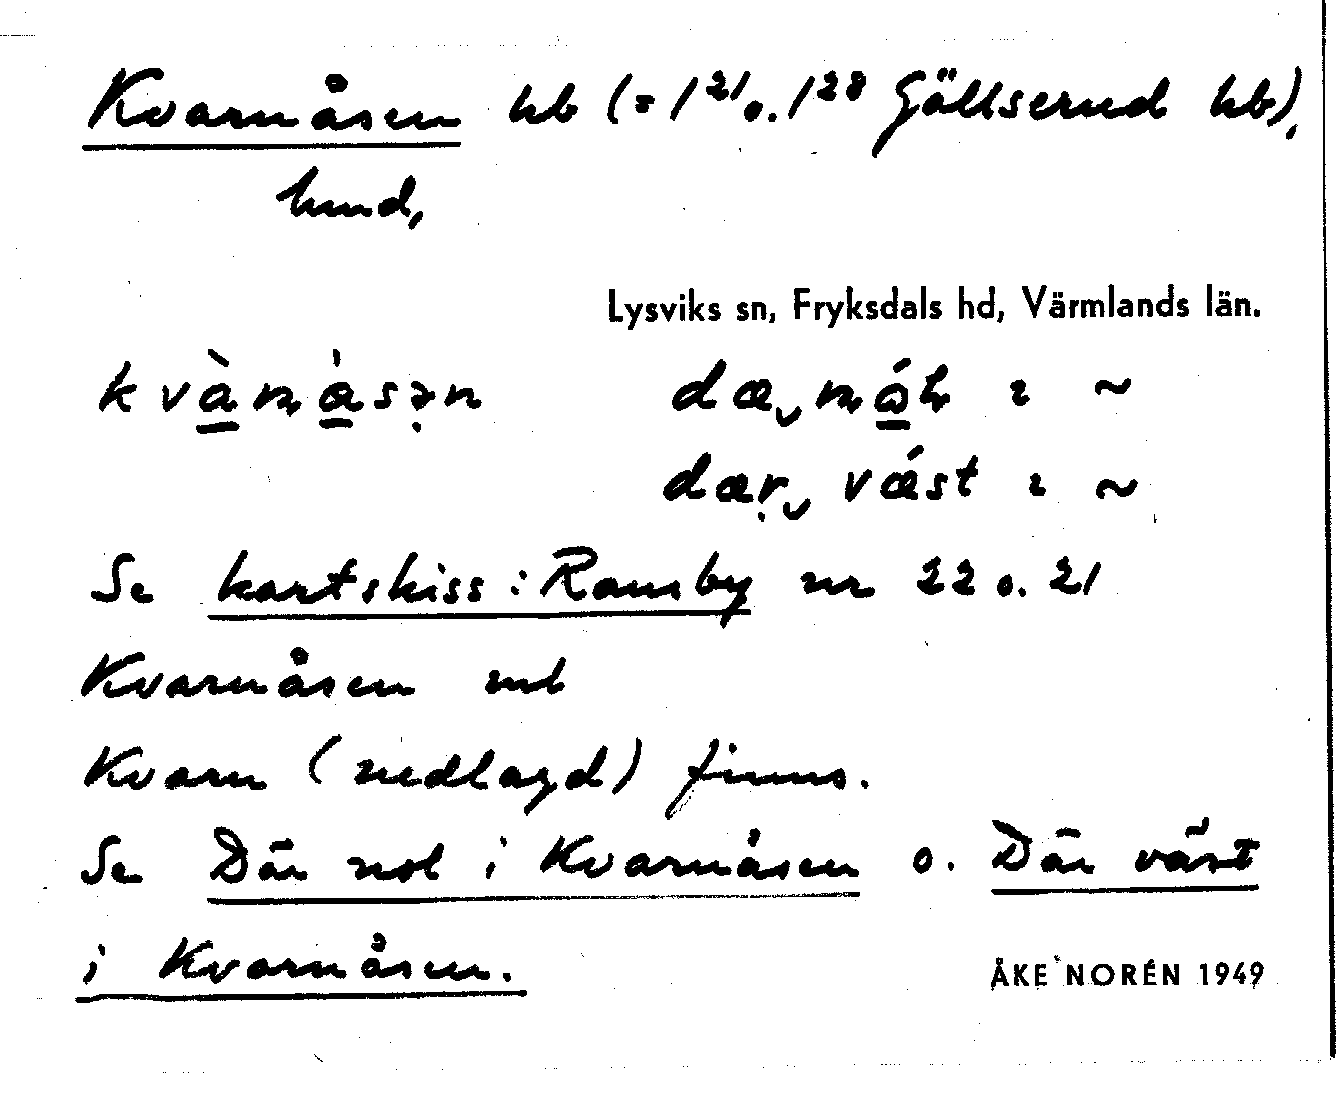 Kvarnåsen hb (= 1²¹ o. 1²⁸ Gällserud hb),
hmd,
Lysviks sn, Fryksdals hd, Värmlands län.
Se kartskiss: Ransby nr 22 o. 21
Kvarnåsen mb
Kvarn (nedlagd) finns.
Se Där nol i Kvarnåsen o. Där väst
i Kvarnåsen.
ÅKE NORÉN 1949